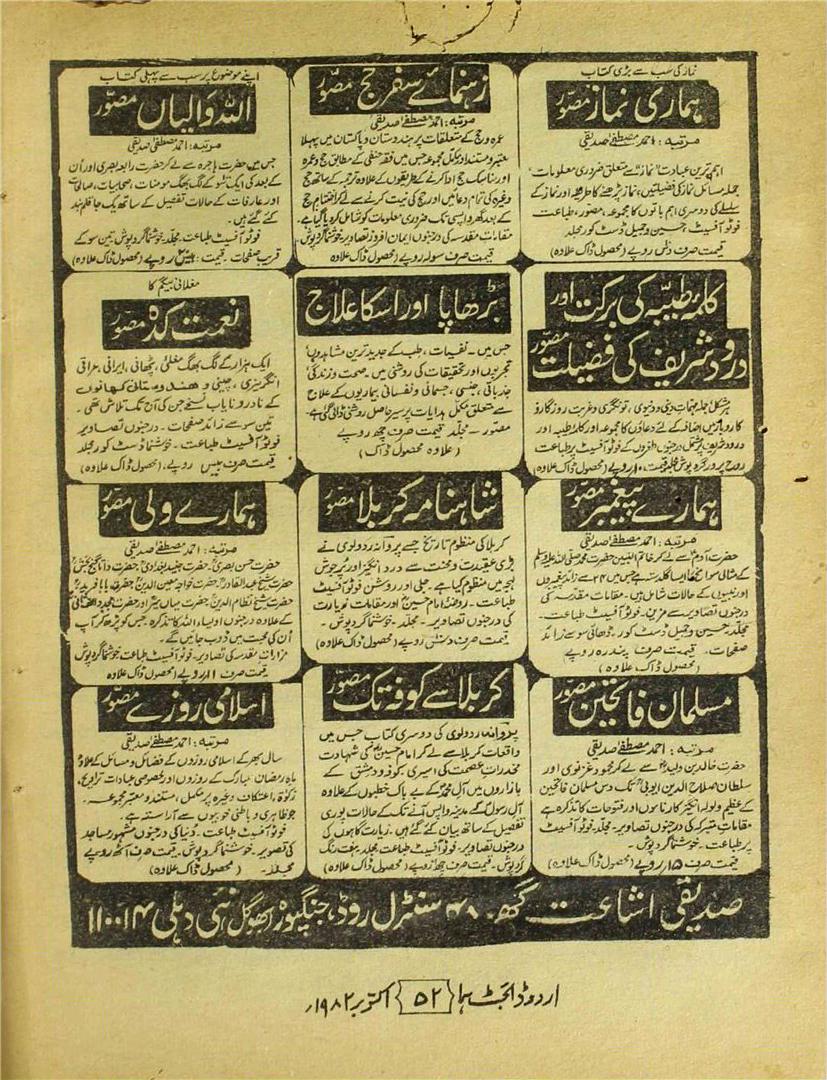 نماز کی سب سے بڑی کتاب
ہماری نماز مصوّر
مرتبہ: احمد مصطفےٰ صدیقی
اہم ترین عبادت "نماز" سے متعلق ضروری معلومات
جملہ مسائل نماز کی فضیلتیں، نماز پڑھنے کا طریقہ اور نماز کے
سلسلے کی دوسری اہم باتوں کا مجموعہ، مصور، طباعت
فوٹو آفسیٹ، حسین و جمیل ڈسٹ کور مجلد
قیمت صرف دس روپے (محصول ڈاک علاوہ)
رہنمائے سفر حج مصوّر
مرتبہ: احمد مصطفےٰ صدیقی
عمرہ و حج کے متعلقات پر ہندوستان و پاکستان میں پہلا
معتبر و مستند اور مکمل مجموعہ جس میں فقہ حنفی کے مطابق حج و عمرہ
اور مناسک حج ادا کرنے کے طریقوں کے علاوہ ترجمہ کے ساتھ حج
وغیرہ کی تمام دعائیں اور حج کی نیت کرنے سے لے کر اختتام حج
کے بعد گھر واپسی تک ضروری معلومات کو شامل کر دیا گیا ہے۔
مقامات مقدسہ کی درجنوں ایمان افروز تصاویر، خوشنما گرد پوش،
قیمت صرف سولہ روپے (محصول ڈاک علاوہ
اپنے موضوع پر سب سے پہلی کتاب
اللہ والیاں مصوّر
مرتبہ: احمد مصطفیٰ صدیقی
جس میں حضرت ہاجرہ سے لے کر حضرت رابعہ بصری اور اُن
کے بعد کی ایک سو کے لگ بھگ مومنات، صحابیات، صالحات
اور عارفات کے حالات تفصیل کے ساتھ یک جا قلم بند
کئے گئے ہیں۔
فوٹو آفسیٹ طباعت۔ مجلد۔ خوشنما گرد پوش، تین سو کے
قریب صفحات۔ قیمت: بیس روپے (محصول ڈاک علاوہ)
کلمۂ طیّبہ کی برکت اور
درود شریف کی فضیلت مصوّر
ہر مشکل، جملہ مہمات دینی و دنیوی، تونگری و غربت روزگار و
کاروبار میں اضافہ کے لئے دعاؤں کا مجموعہ اور کلمہ طیبہ اور
درود شریف پر مشتمل درجنوں طغروں کے فوٹو آفسیٹ پر طباعت
روح پرور گرد پوش مجلد قیمت ۱۰ روپے (محصول ڈاک علاوہ)
بڑھاپا اور اس کا علاج
جس میں۔ نفسیات، طب کے جدید ترین مشاہدوں،
تجربوں اور تحقیقات کی روشنی میں۔ صحت و زندگی،
جذباتی، جنسی، جسمانی و نفسانی بیماریوں کے علاج
سے متعلق مکمل ہدایات پر سیر حاصل روشنی ڈالی گئی ہے۔
مصور۔ مجلد قیمت صرف چھ روپے
(علاوہ محصول ڈاک)
مغلانی بیگم کا
نعمت کدہ مصوّر
ایک ہزار کے لگ بھگ مغلئی، پٹھانی، ایرانی، عراقی
انگریزی، چینی و ہندوستانی کھانوں
کے نادر و نایاب نسخے جن کی آج تک تلاش تھی۔
تین سو سے زائد صفحات۔ درجنوں تصاویر
فوٹو آفسیٹ طباعت۔ خوشنما ڈسٹ کور مجلد
قیمت صرف بیس روپے، (محصول ڈاک علاوہ)
ہمارے پیغمبر مصوّر
مرتبہ: احمد مصطفےٰ صدیقی
حضرت آدمؑ سے لے کر خاتم النبیین حضرت محمد صلی اللہ علیہ وسلم
کے مثالی سوانح کا ایسا گلدستہ ہے جس میں ۲۲ سے زائد پیغمبروں
اور نبیوں کے حالات شامل ہیں۔ مقامات مقدسہ کی
درجنوں تصاویر سے مزین۔ فوٹو آفسیٹ طباعت۔
مجلد۔ حسین و جمیل ڈسٹ کور، ڈھائی سو سے زائد
صفحات۔ قیمت صرف پندرہ روپے
(محصول ڈاک علاوہ)
شاہنامہ کربلا مصوّر
کربلا کی منظوم تاریخ جسے پروانہ ردولوی نے
بڑی عقیدت و محنت سے درد انگیز اور پرجوش
لہجہ میں منظوم کیا ہے۔ جلی اور روشن فوٹو آفسیٹ
طباعت۔ روضہ امام حسینؑ اور مقامات زیارت
کی درجنوں تصاویر۔ مجلد۔ خوشنما گرد پوش۔
قیمت صرف دس روپے (محصول ڈاک علاوہ)
ہمارے ولی مصوّر
مرتبہ: احمد مصطفےٰ صدیقی
حضرت حسن بصریؒ، حضرت جنید بغدادیؒ، حضرت داتا گنج بخشؒ
حضرت شیخ عبدالقادرؒ حضرت خواجہ معین الدینؒ حضرت بابا فریدؒ
حضرت شیخ نظام الدینؒ حضرت میاں میرؒ اور حضرت مجدد الف ثانیؒ
کے علاوہ درجنوں اولیاء اللہ کا تذکرہ، جس کو پڑھ کر آپ
اُن کی محبت میں ڈوب جائیں گے۔
مزارات مقدسہ کی تصاویر۔ فوٹو آفسیٹ طباعت خوشنما گرد پوش
قیمت صرف ۱۸ روپے (محصول ڈاک علاوہ
مسلمان فاتحین مصوّر
مرتبہ: احمد مصطفےٰ صدیقی
حضرت خالد بن ولیدؓ سے لے کر محمود غزنوی اور
سلطان صلاح الدین ایوبیؒ تک دس مسلمان فاتحین
کے عظیم ولولہ انگیز کارناموں اور فتوحات کا تذکرہ ہے
مقامات متبرکہ کی درجنوں تصاویر۔ مجلد۔ فوٹو آفسیٹ
پر طباعت۔ خوشنما گرد پوش۔
قیمت صرف ۱۵ روپے (محصول ڈاک علاوہ)
کربلا سے کوفہ تک مصوّر
پروانہ ردولوی کی دوسری کتاب جس میں
واقعات کربلا سے لے کر امام حسینؑ کی شہادت
مخدرات عصمت کی اسیری، کوفہ و دمشق کے
بازاروں میں آل محمدؐ کے بے باک خطبوں کے علاوہ
آل رسولؐ کے مدینہ واپس آنے تک کے حالات پوری
تفصیل کے ساتھ بیان کئے گئے ہیں۔ زیارت گاہوں کی
درجنوں تصاویر۔ فوٹو آفسیٹ طباعت مجلد ہفت رنگ
گرد پوش۔ قیمت صرف چھ روپے (محصول ڈاک علاوہ)
اسلامی روزے مصوّر
مرتبہ: احمد مصطفےٰ صدیقی
سال بھر کے اسلامی روزوں کے فضائل و مسائل کے علاوہ
ماہ رمضان المبارک کے روزوں اور خصوصی عبادات تراویح،
زکوٰۃ، اعتکاف وغیرہ پر مکمل، مستند و معتبر مجموعہ۔
جو ظاہری و باطنی خوبیوں سے آراستہ ہے۔
فوٹو آفسیٹ طباعت۔ دنیا کی درجنوں مشہور مساجد
کی تصویر۔ خوشنما گرد پوش۔ قیمت صرف آٹھ روپے
مجلد۔ (محصول ڈاک علاوہ)
صدیقی اشاعت گھر۔ ۴۸ سنٹرل روڈ، جنگپورہ بھوگل نئی دہلی ۱۱۰۰۱۴
اردو ڈائجسٹ ہما {۵۲} اکتوبر ۱۹۸۲ء